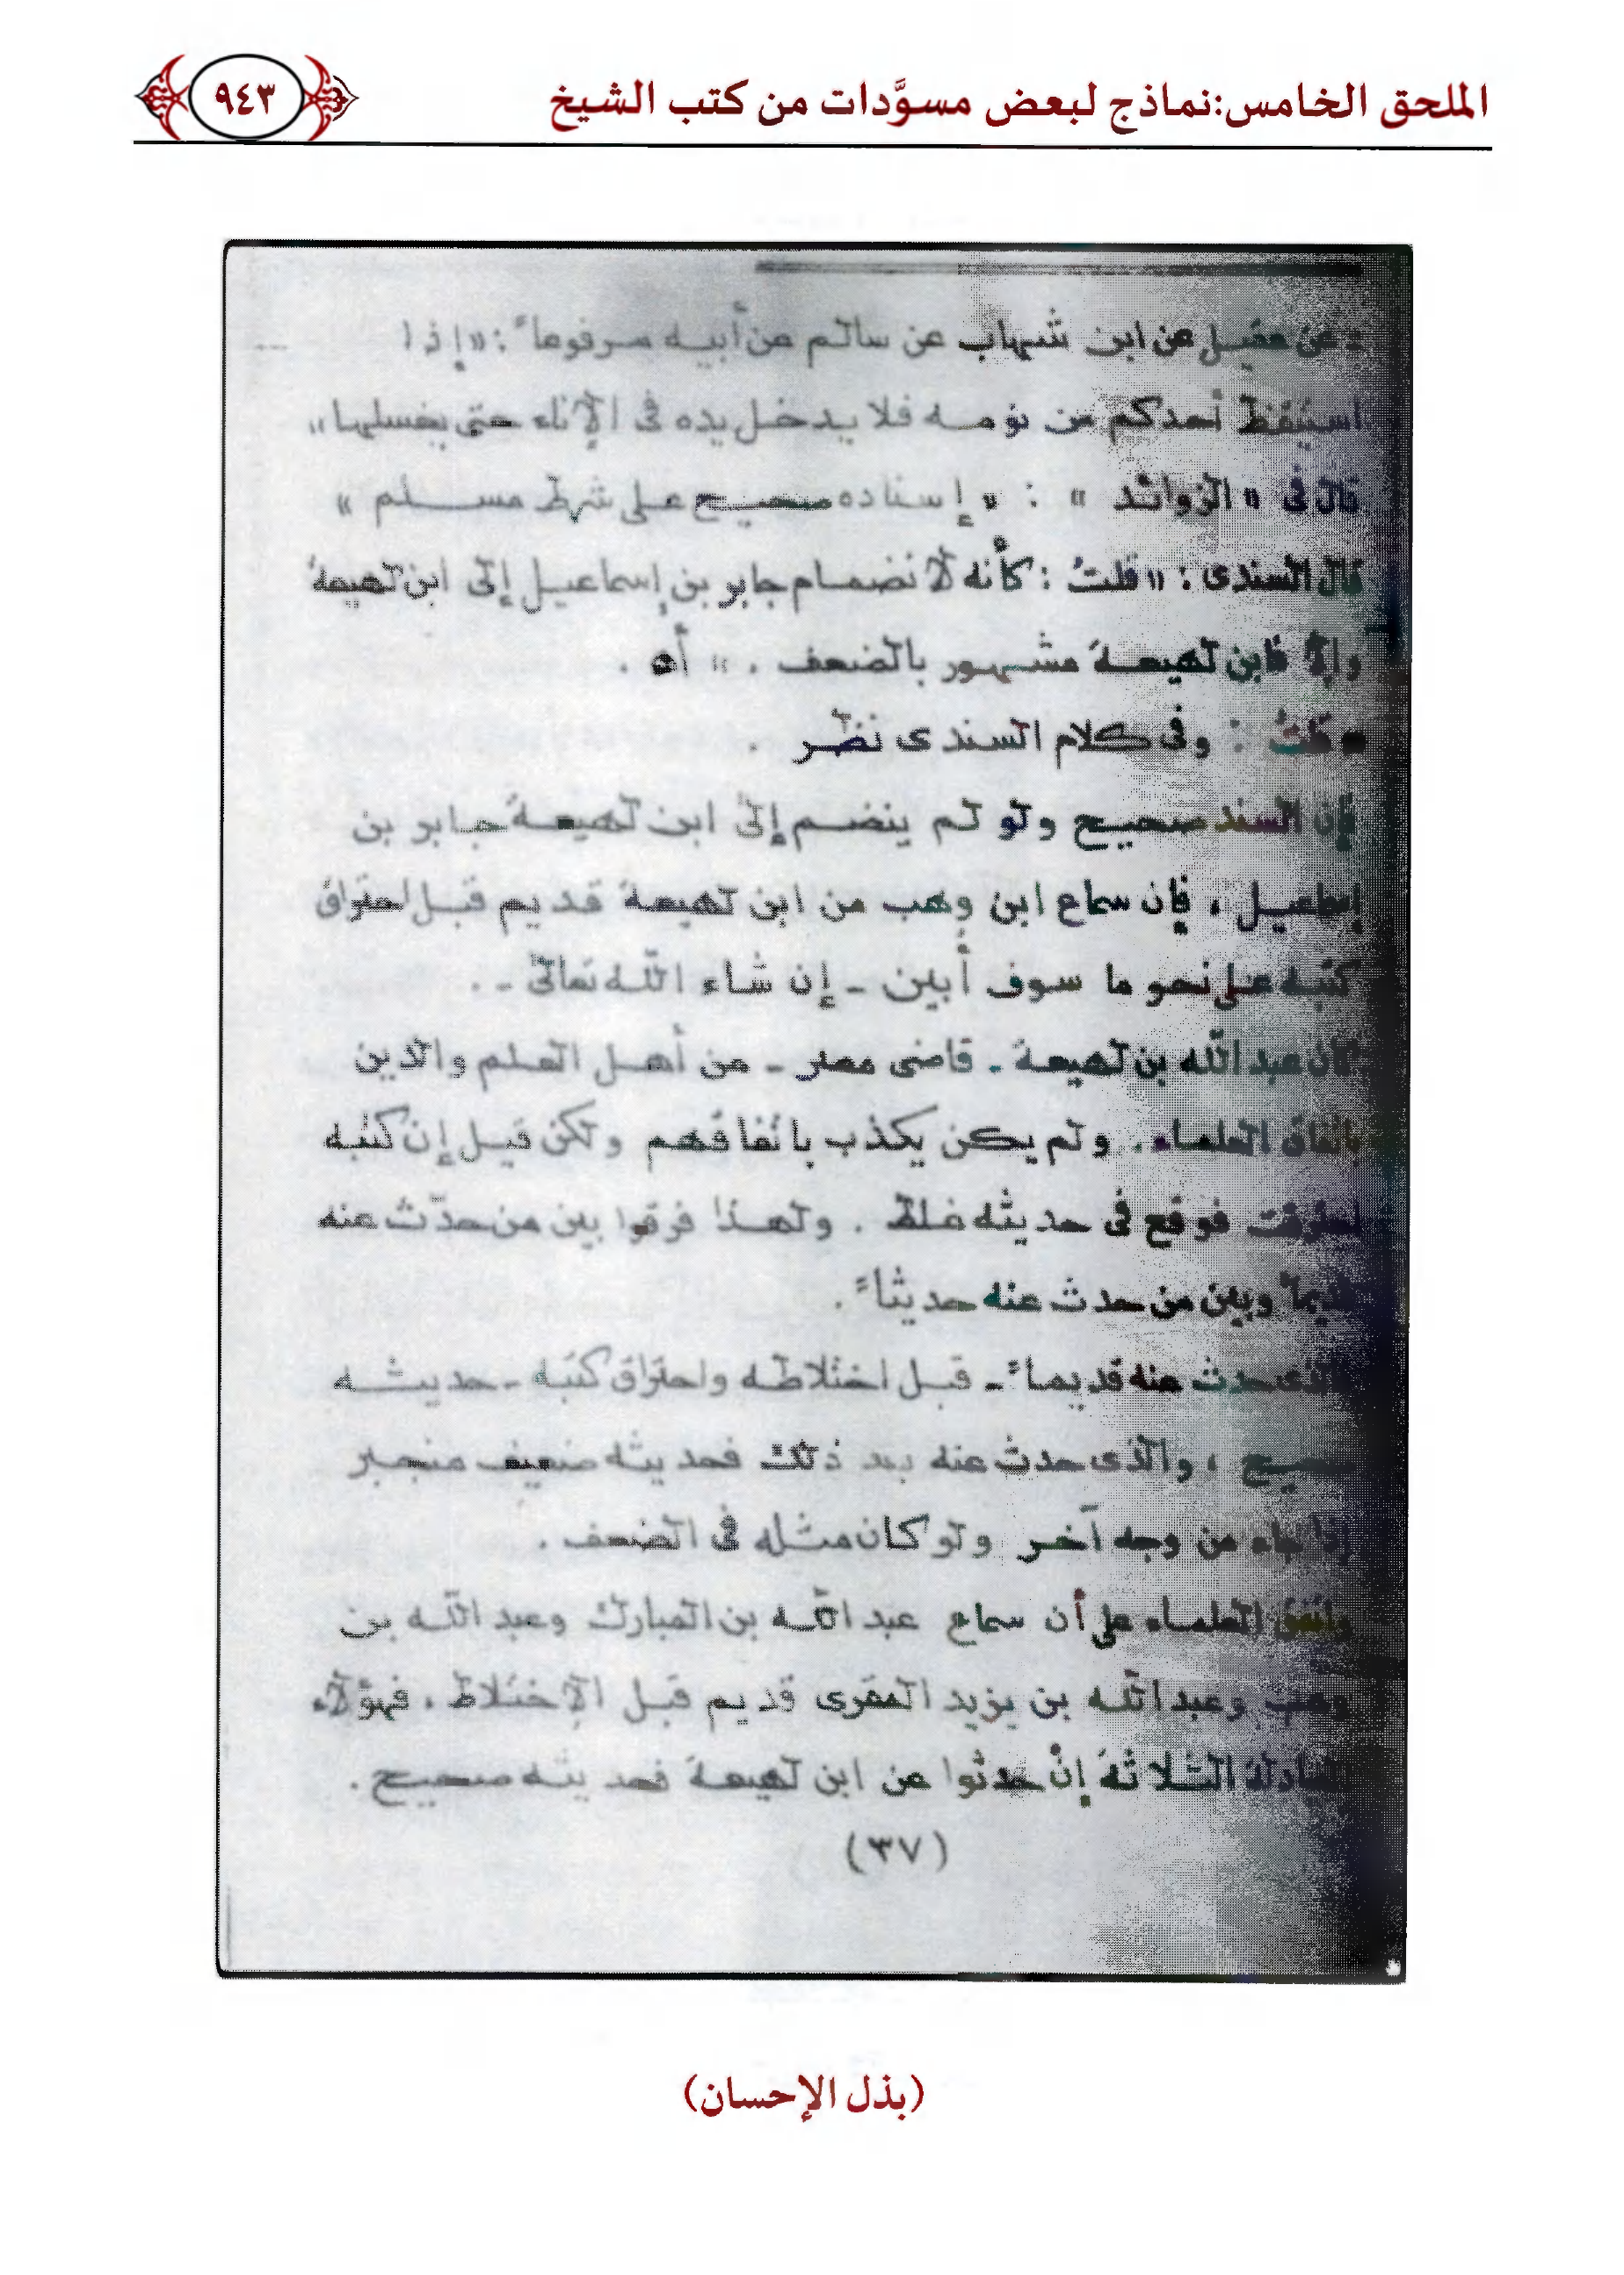 الملحق الخامس:نماذج لبعض مسوَّدات من كتب الشيخ
٩٤٣
= عن عقيل عن ابن شهاب عن سالم عن أبيه مرفوعاً : «إذا
استيقظ أحدكم من نومه فلا يدخل يده فى الإناء حتى يغسلها»
قال فى «الزوائد» : «إسناده صحيح على شرط مسلم»
قال السندى : «قلتُ : كأنه لانضمام جابر بن إسماعيل إلى ابن لهيعة
وإلا فابن لهيعة مشهور بالضعف . » أه .
* قلتُ : وفى كلام السندى نظر .
فإن السند صحيح ولو لم ينضم إلى ابن لهيعة جابر بن
إسماعيل ، فإن سماع ابن وهب من ابن لهيعة قديم قبل احتراق
كتبه على نحو ما سوف أبين - إن شاء الله تعالى - .
كان عبد الله بن لهيعة - قاضى مصر - من أهل العلم والدين
باتفاق العلماء . ولم يكن يكذب باتفاقهم ولكن قيل إن كتبه
احترقت فوقع فى حديثه غلط . ولهذا فرقوا بين من حدث عنه
قديماً وبين من حدث عنه حديثاً .
والذى حدث عنه قديماً - قبل اختلاطه واحتراق كتبه - حديثه
صحيح ، والذى حدث عنه بعد ذلك فحديثه ضعيف منجبر
إذا جاء من وجه آخر ولو كان مثله فى الضعف .
واتفق العلماء على أن سماع عبد الله بن المبارك وعبد الله بن
وهب وعبد الله بن يزيد المقرى قديم قبل الإختلاط ، فهؤلاء
العبادلة الثلاثة إنْ حدثوا عن ابن لهيعة فحديثه صحيح .
(٣٧)
(بذل الإحسان)